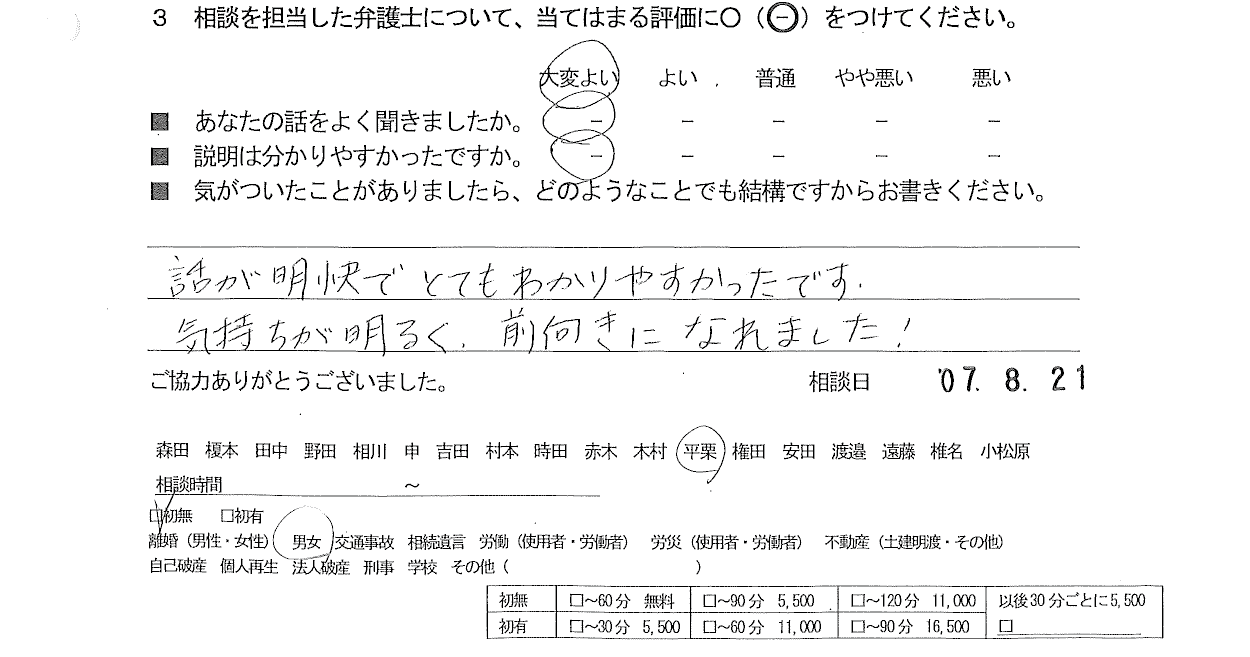 3 相談を担当した弁護士について、当てはまる評価に○（㊀）をつけてください。
大変よい よい 普通 やや悪い 悪い
■ あなたの話をよく聞きましたか。 － － － － －
■ 説明は分かりやすかったですか。 － － － － －
■ 気がついたことがありましたら、どのようなことでも結構ですからお書きください。
話が明快でとてもわかりやすかったです.
気持ちが明るく.前向きになれました!
ご協力ありがとうございました。 相談日 '07. 8. 21
森田 榎本 田中 野田 相川 申 吉田 村本 時田 赤木 木村 平栗 権田 安田 渡邉 遠藤 椎名 小松原
相談時間 ～
□初無 □初有
離婚（男性・女性） 男女 交通事故 相続遺言 労働（使用者・労働者） 労災（使用者・労働者） 不動産（土建明渡・その他）
自己破産 個人再生 法人破産 刑事 学校 その他（ ）
初無 □～60分 無料 □～90分 5,500 □～120分 11,000 以後30分ごとに5,500
初有 □～30分 5,500 □～60分 11,000 □～90分 16,500 □